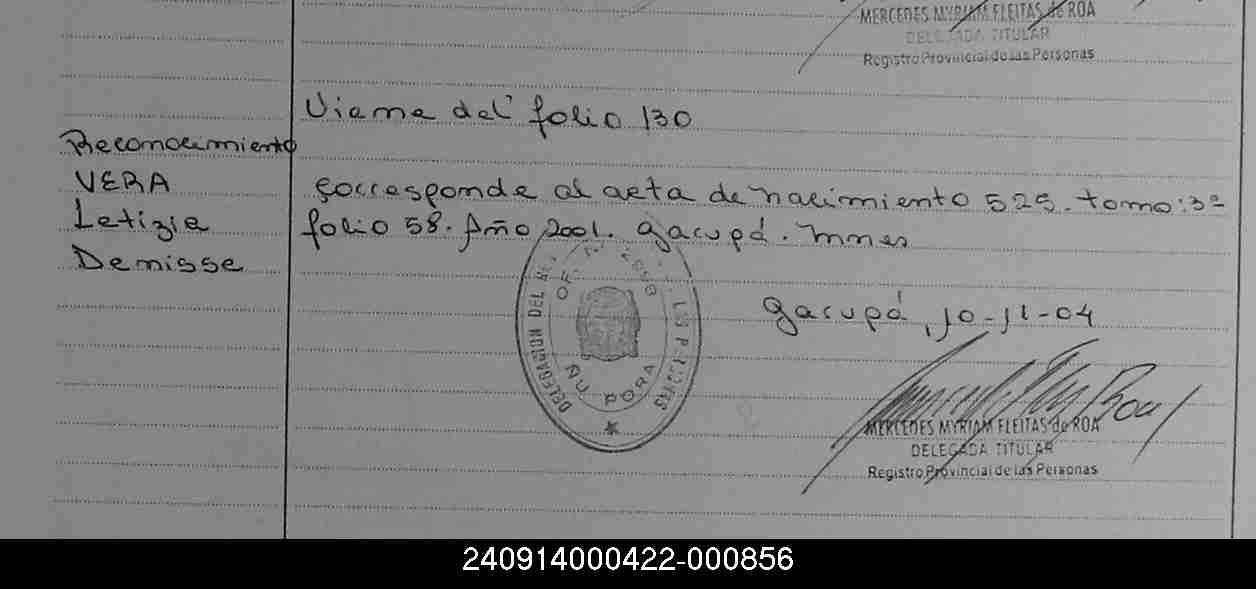 MERCEDES MYRIAM FLEITAS de ROA
DELEGADA TITULAR
Registro Provincial de las Personas
Viene del folio 130
Reconocimiento
VERA
Letizia
Denisse
corresponde al acta de nacimiento 525. tomo: 3º
folio 58. Año 2001. garupá. Mnes
DELEGACION DEL
LAS PERSONAS
ÑU PORA
garupá, 10-11-04
MERCEDES MYRIAM FLEITAS de ROA
DELEGADA TITULAR
Registro Provincial de las Personas
240914000422-000856